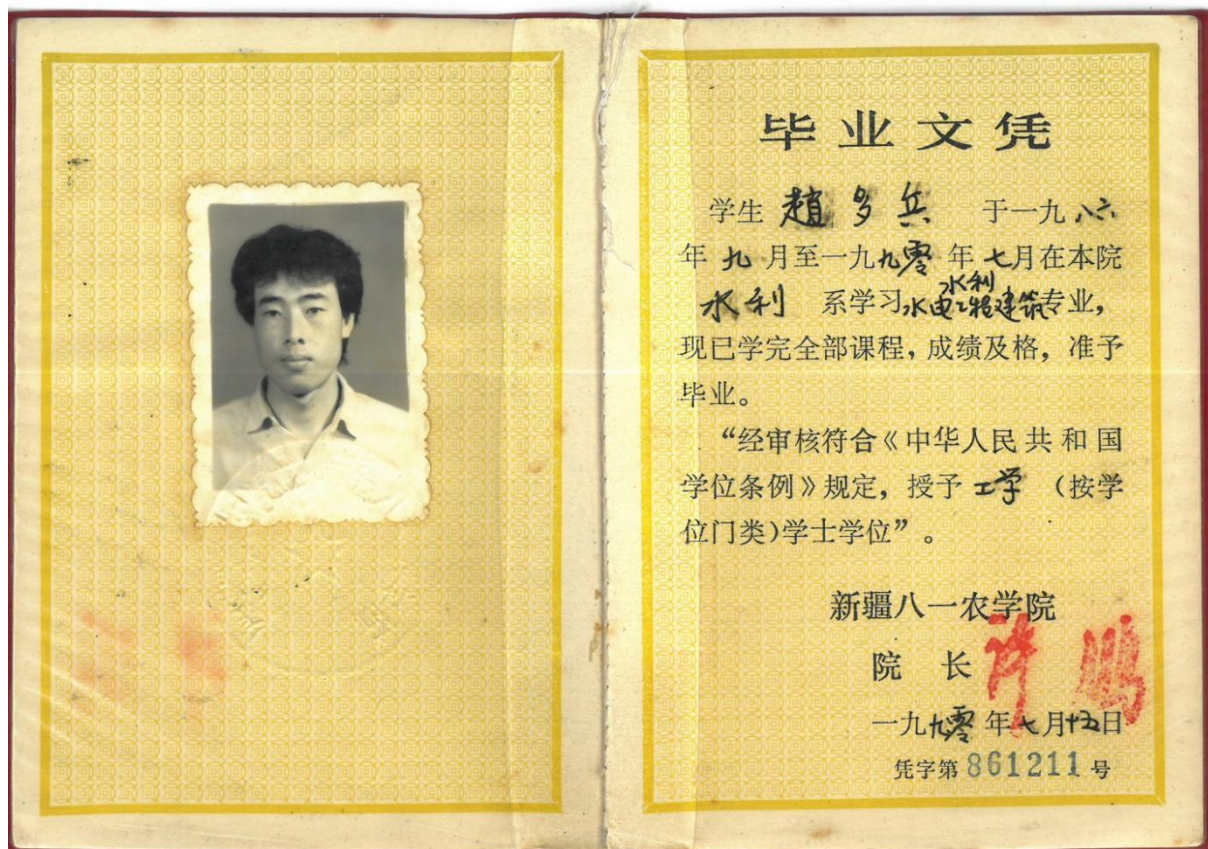 毕业文凭
学生 趙多兵 于一九八六
年九月至一九九零年七月在本院
水利系学习水利水电工程建筑专业，
现已学完全部课程，成绩及格，准予
毕业。
“经审核符合《中华人民共和国
学位条例》规定，授予工学（按学
位门类)学士学位”。
新疆八一农学院
院长 许鹏
一九九零年七月十五日
凭字第861211号